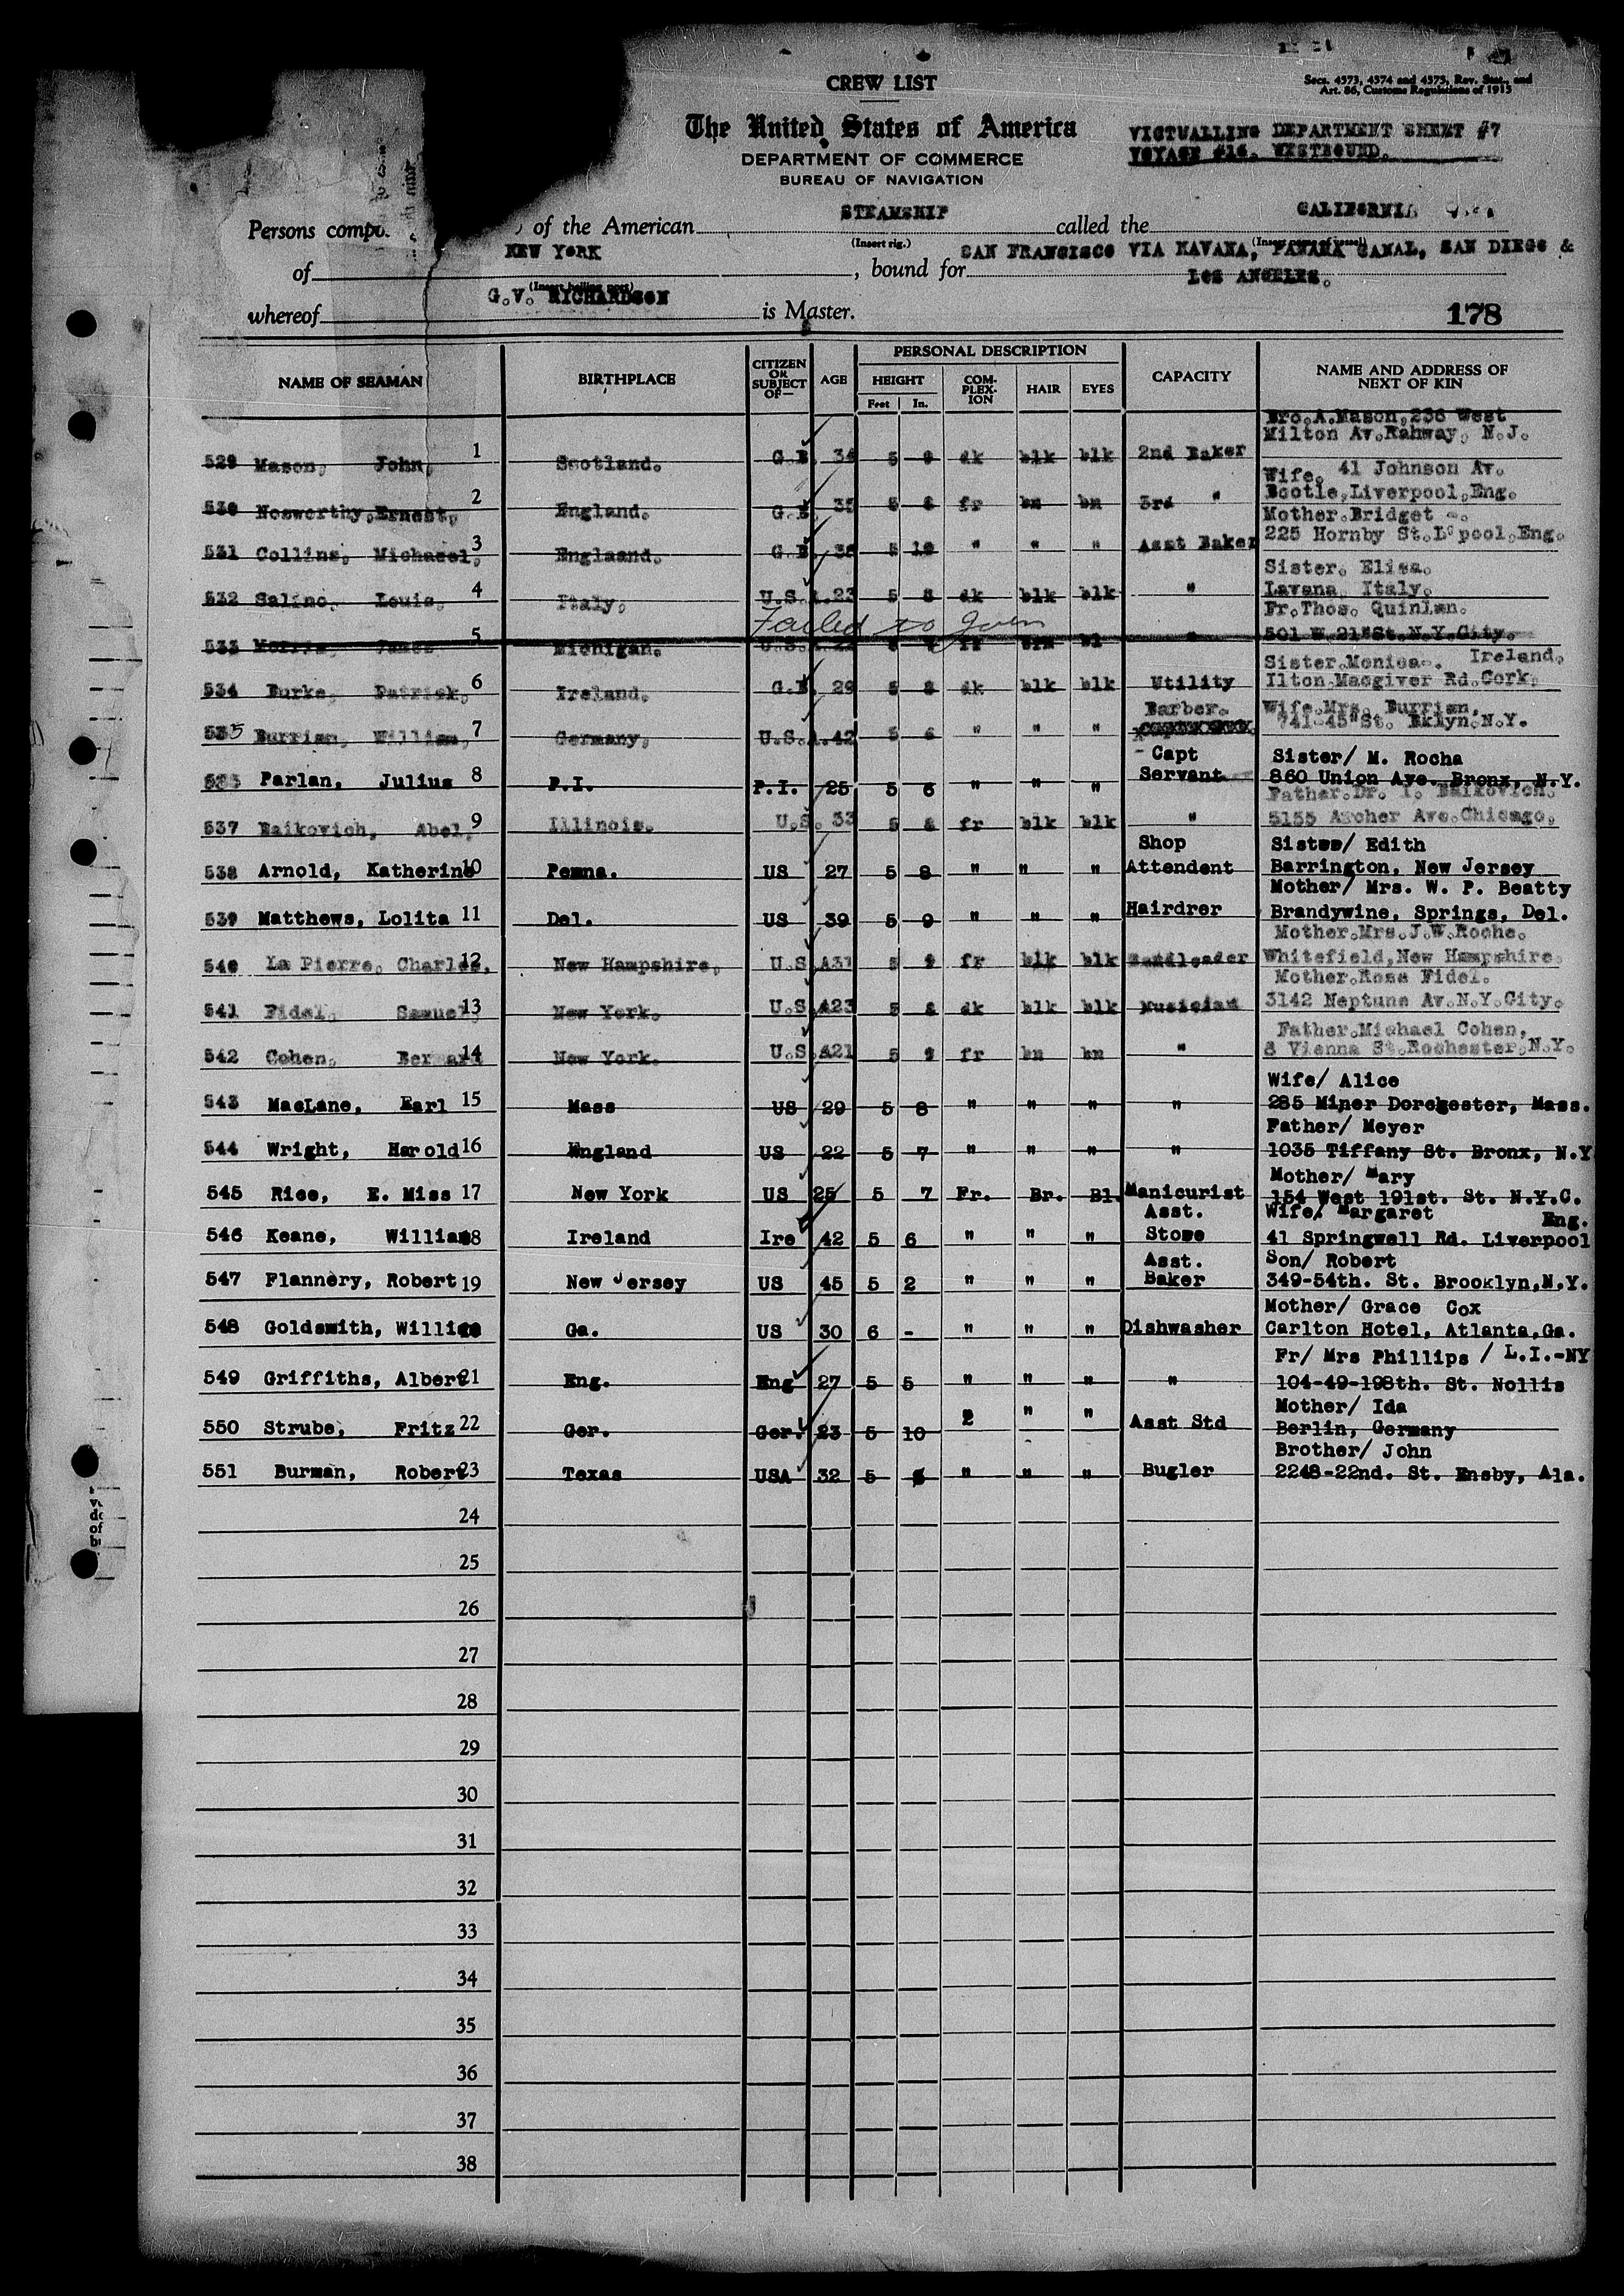 CREW LIST
Secs. 4573, 4574 and 4575, Rev. Stat., and
Art. 86, Customs Regulations of 1915
The United States of America
VICTUALLING DEPARTMENT SHEET #7
DEPARTMENT OF COMMERCE
VOYAGE #16. WESTBOUND.
BUREAU OF NAVIGATION
Persons compo of the American STEAMSHIP called the CALIFORNIA
(Insert rig.)
of NEW YORK, bound for SAN FRANCISCO VIA HAVANA, PANAMA CANAL, SAN DIEGO &
LOS ANGELES.
(Insert hailing port)
whereof G.V. RICHARDSON is Master.
178
NAME OF SEAMAN BIRTHPLACE CITIZEN OR SUBJECT OF— AGE PERSONAL DESCRIPTION CAPACITY NAME AND ADDRESS OF NEXT OF KIN
HEIGHT COM-PLEX-ION HAIR EYES
Feet In.
Bro.A.Mason,236 West
529 Mason, John, 1 Scotland. G.B. 34 5 dk blk blk 2nd Baker Milton Av.Rahway, N.J.
Wife. 41 Johnson Av.
530 Nosworthy,Ernest, 2 England. G.B. 35 5 8 fr bn bn 3rd " Bootle,Liverpool,Eng.
Mother.Bridget
531 Collins, Michael, 3 England. G.B. 5 10 " " " Asst Baker 225 Hornby St.L'pool,Eng.
Sister. Elisa.
532 Salino, Louis, 4 Italy, U.S. 23 5 8 dk blk blk " Lavana, Italy.
Failed to join
Fr.Thos. Quinlan.
533 5 Michigan. U.S. " 501 W.21"St.N.Y.City.
Sister.Monica. Ireland.
534 Burke, Patrick, 6 Ireland. G.B. 29 5 8 dk blk blk Utility Ilton.Macgiver Rd.Cork.
Barber. Wife.Mrs. Burrian.
535 Burrian, William, 7 Germany, U.S. 42 5 6 " " " 741-45"St. Bklyn.N.Y.
Capt Sister/ M. Rocha
Parlan, Julius 8 P.I. P.I. 25 5 6 " " " Servant 860 Union Ave. Bronx, N.Y.
Father.Dr.
537 Raikovich, Abel, 9 Illinois. U.S. 33 5 8 fr blk blk " 5155 Archer Ave.Chicago,
Shop Sister/ Edith
538 Arnold, Katherine 10 Penna. US 27 5 8 " " " Attendent Barrington, New Jersey
Mother/ Mrs. W. P. Beatty
539 Matthews, Lolita 11 Del. US 39 5 9 " " " Hairdrer Brandywine, Springs, Del.
Mother.Mrs.J.W.Roche.
540 La Pierre, Charles, 12 New Hampshire, U.S.A 31 5 9 fr blk blk Bandleader Whitefield,New Hampshire.
Mother.Rose Fidel.
541 Fidel, Samuel 13 New York. U.S.A 23 5 8 dk blk blk Musician 3142 Neptune Av.N.Y.City.
Father.Michael Cohen,
542 Cohen, Bernard 14 New York. U.S.A 21 5 9 fr bn bn " 8 Vienna St.Rochester,N.Y.
Wife/ Alice
543 MacLane, Earl 15 Mass US 29 5 8 " " " " 285 Miner Dorchester, Mass.
Father/ Meyer
544 Wright, Harold 16 England US 22 5 7 " " " " 1035 Tiffany St. Bronx, N.Y
Mother/ Mary
545 Rice, E. Miss 17 New York US 25 5 7 Fr. Br. Bl. Manicurist 154 West 191st. St. N.Y.C.
Asst. Wife/ Margaret Eng.
546 Keane, William 18 Ireland Ire 42 5 6 " " " Stowe 41 Springwell Rd. Liverpool
Asst. Son/ Robert
547 Flannery, Robert 19 New Jersey US 45 5 2 " " " Baker 349-54th. St. Brooklyn,N.Y.
Mother/ Grace Cox
548 Goldsmith, Willie 20 Ga. US 30 6 - " " " Dishwasher Carlton Hotel, Atlanta,Ga.
Fr/ Mrs Phillips / L.I.-NY
549 Griffiths, Albert 21 Eng. Eng 27 5 5 " " " " 104-49-198th. St. Nollis
Mother/ Ida
550 Strube, Fritz 22 Ger. Ger. 23 5 10 2 " " Asst Std Berlin, Germany
Brother/ John
551 Burman, Robert 23 Texas USA 32 5 " " " Bugler 2248-22nd. St. Ensby, Ala.
24
25
26
27
28
29
30
31
32
33
34
35
36
37
38